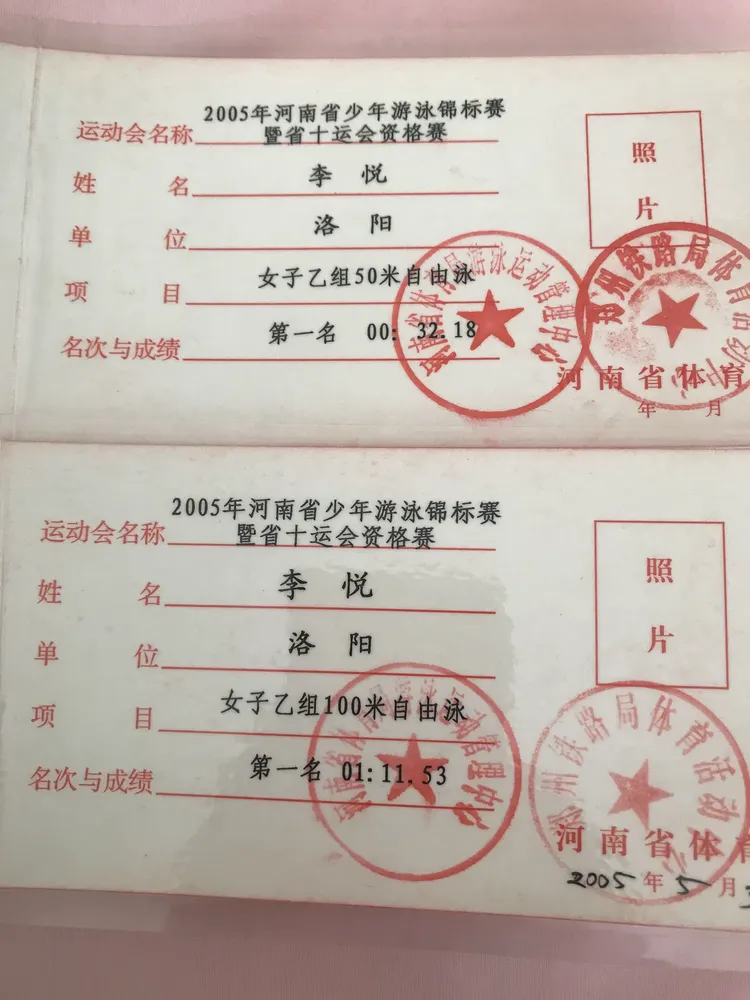 2005年河南省少年游泳锦标赛
运动会名称 暨省十运会资格赛
姓 名 李 悦
单 位 洛 阳
项 目 女子乙组50米自由泳
名次与成绩 第一名 00: 32.18
照
片
河南省体育局游泳运动管理中心
郑州铁路局体育活动中心
河南省体育
年 月
2005年河南省少年游泳锦标赛
运动会名称 暨省十运会资格赛
姓 名 李 悦
单 位 洛 阳
项 目 女子乙组100米自由泳
名次与成绩 第一名 01:11.53
照
片
河南省体育局游泳运动管理中心
郑州铁路局体育活动
河南省体育
2005年5月